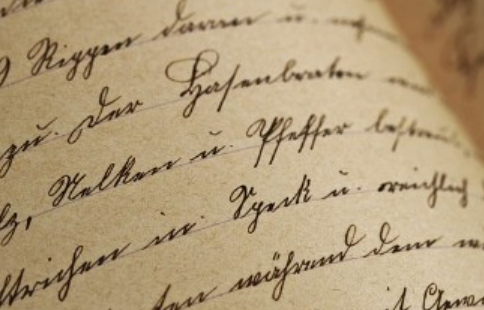 Rippen daran u.
zu. Der Hasenbraten
Nelken u. Pfeffer bestreut,
strichen in Speck u. reichlich
während dem